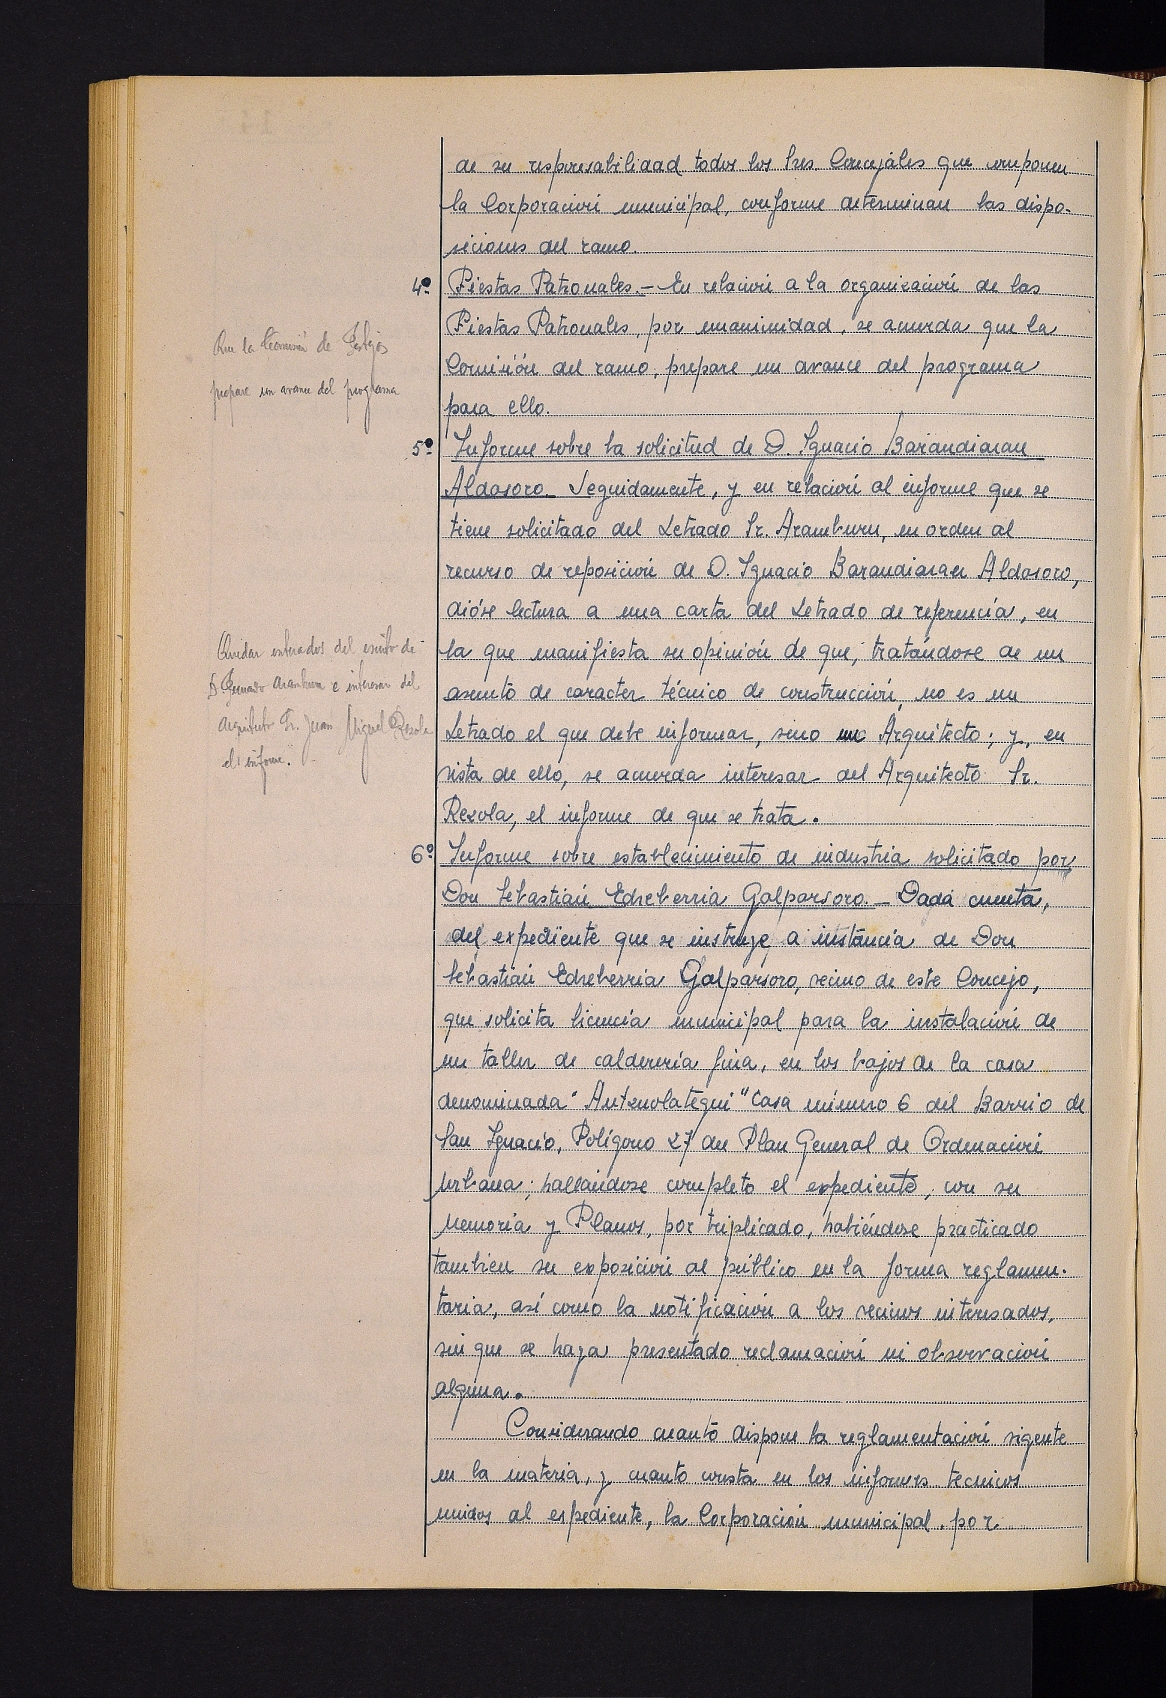 de su responsabilidad todos los Sres. Concejales que componen
la Corporación municipal, conforme determinan las dispo-
siciones del ramo.
4º Fiestas Patronales.- En relación a la organización de las
Fiestas Patronales, por unanimidad, se acuerda que la
Comisión del ramo, prepare un avance del programa
para ello.
Que la Comisión de Festejos
prepare un avance del programa
5º Informe sobre la solicitud de D. Ignacio Barandiaran
Aldasoro.- Seguidamente, y en relación al informe que se
tiene solicitado del Letrado Sr. Aramburu, en orden al
recurso de reposición de D. Ignacio Barandiaran Aldasoro,
dióse lectura a una carta del Letrado de referencia, en
la que manifiesta su opinión de que, tratándose de un
asunto de caracter técnico de construcción, no es un
Letrado el que debe informar, sino un Arquitecto; y, en
vista de ello, se acuerda interesar del Arquitecto Sr.
Rezola, el informe de que se trata.
Quedar enterados del escrito de
D. Aramburu e interesar del
arquitecto Sr. Juan Miguel Rezola
el informe.
6º Informe sobre establecimiento de industria solicitado por
Don Sebastián Echeberria Galparsoro.- Dada cuenta,
del expediente que se instruye a instancia de Don
Sebastián Echeberria Galparsoro, vecino de este Concejo,
que solicita licencia municipal para la instalación de
un taller de calderería fina, en los bajos de la casa
denominada "Antzuolategui" Casa número 6 del Barrio de
San Ignacio, Polígono 27 del Plan General de Ordenación
Urbana; hallándose completo el expediente, con su
Memoria y Planos, por triplicado, habiéndose practicado
tambien su exposición al público en la forma reglamen-
taria, así como la notificación a los vecinos interesados,
sin que se haya presentado reclamación ni observación
alguna.
Considerando cuanto dispone la reglamentación vigente
en la materia, y cuanto consta en los informes tecnicos
unidos al expediente, la Corporación municipal, por